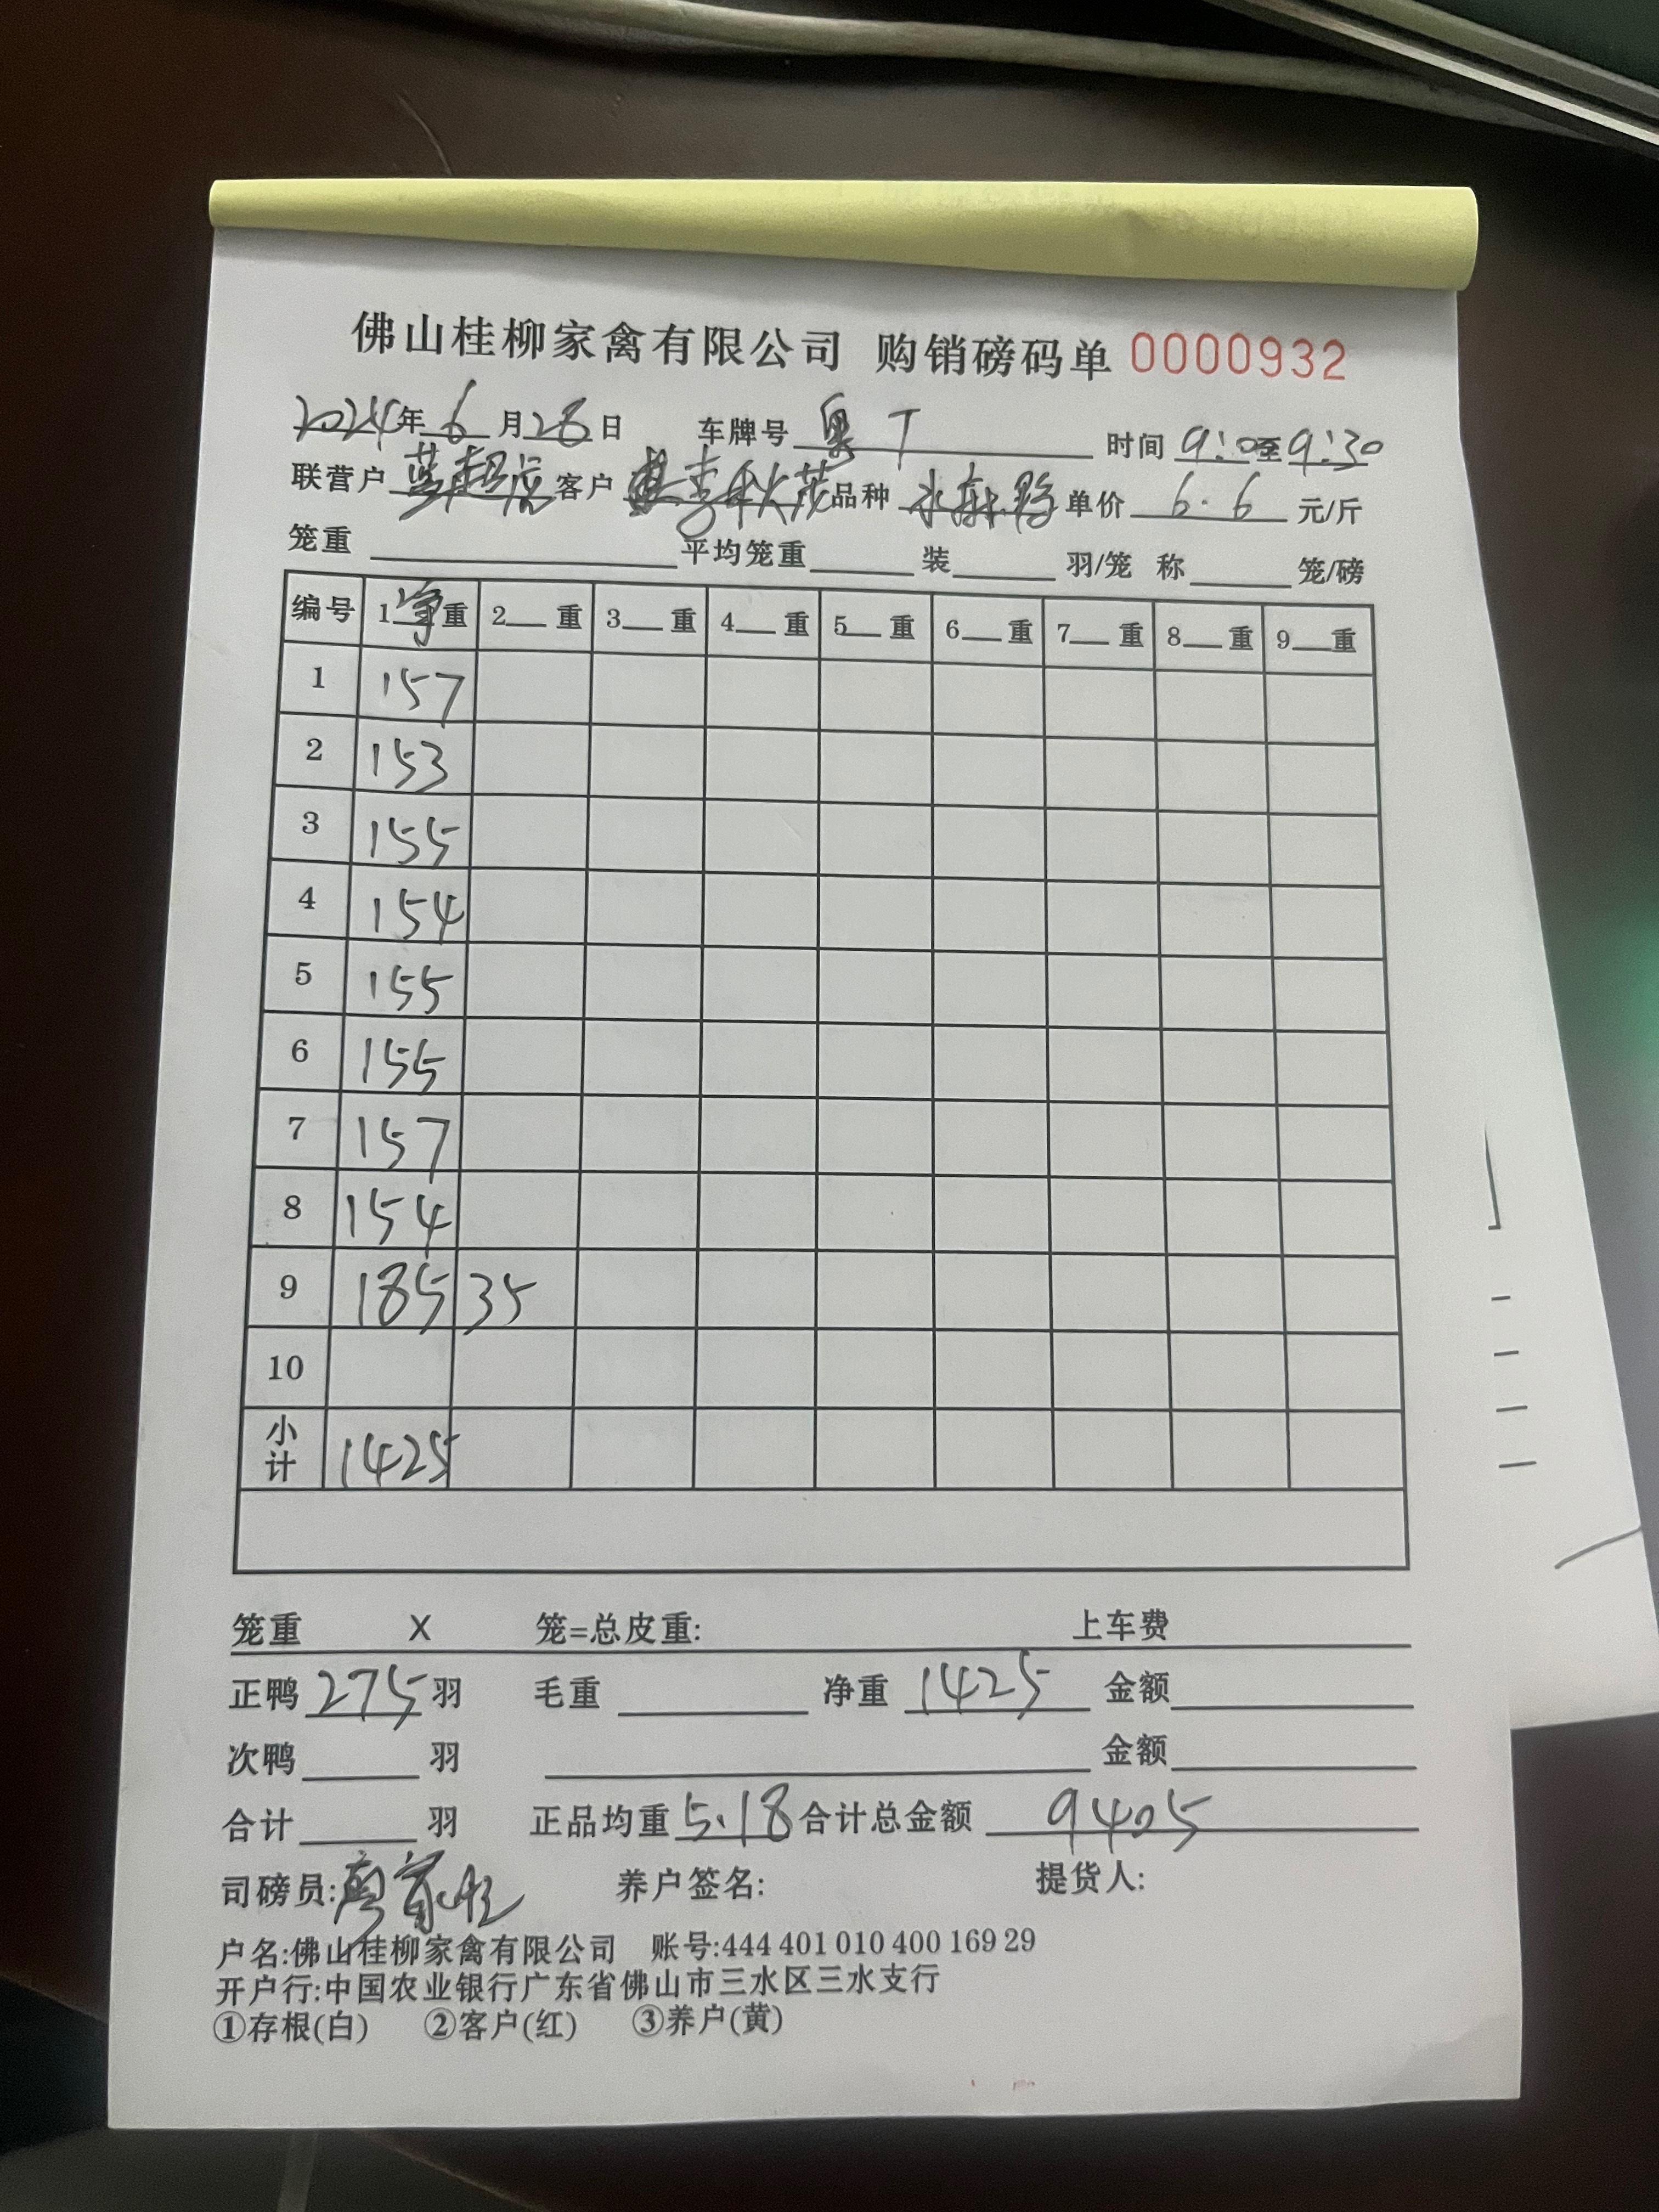 佛山桂柳家禽有限公司 购销磅码单 0000932
2024年6月28日 车牌号 粤T 时间 9:0至9:30
联营户 客户 李秋茂 品种 水鸭 单价 6.6 元/斤
笼重 平均笼重 装 羽/笼 称 笼/磅
编号 1净重 2 重 3 重 4 重 5 重 6 重 7 重 8 重 9 重
1 157
2 153
3 155
4 154
5 155
6 155
7 157
8 154
9 185 35
10
小计 1425
笼重 X 笼=总皮重: 上车费
正鸭 275 羽 毛重 净重 1425 金额
次鸭 羽 金额
合计 羽 正品均重 5.18 合计总金额 9405
司磅员: 养户签名: 提货人:
户名:佛山桂柳家禽有限公司 账号:444 401 010 400 169 29
开户行:中国农业银行广东省佛山市三水区三水支行
①存根(白) ②客户(红) ③养户(黄)